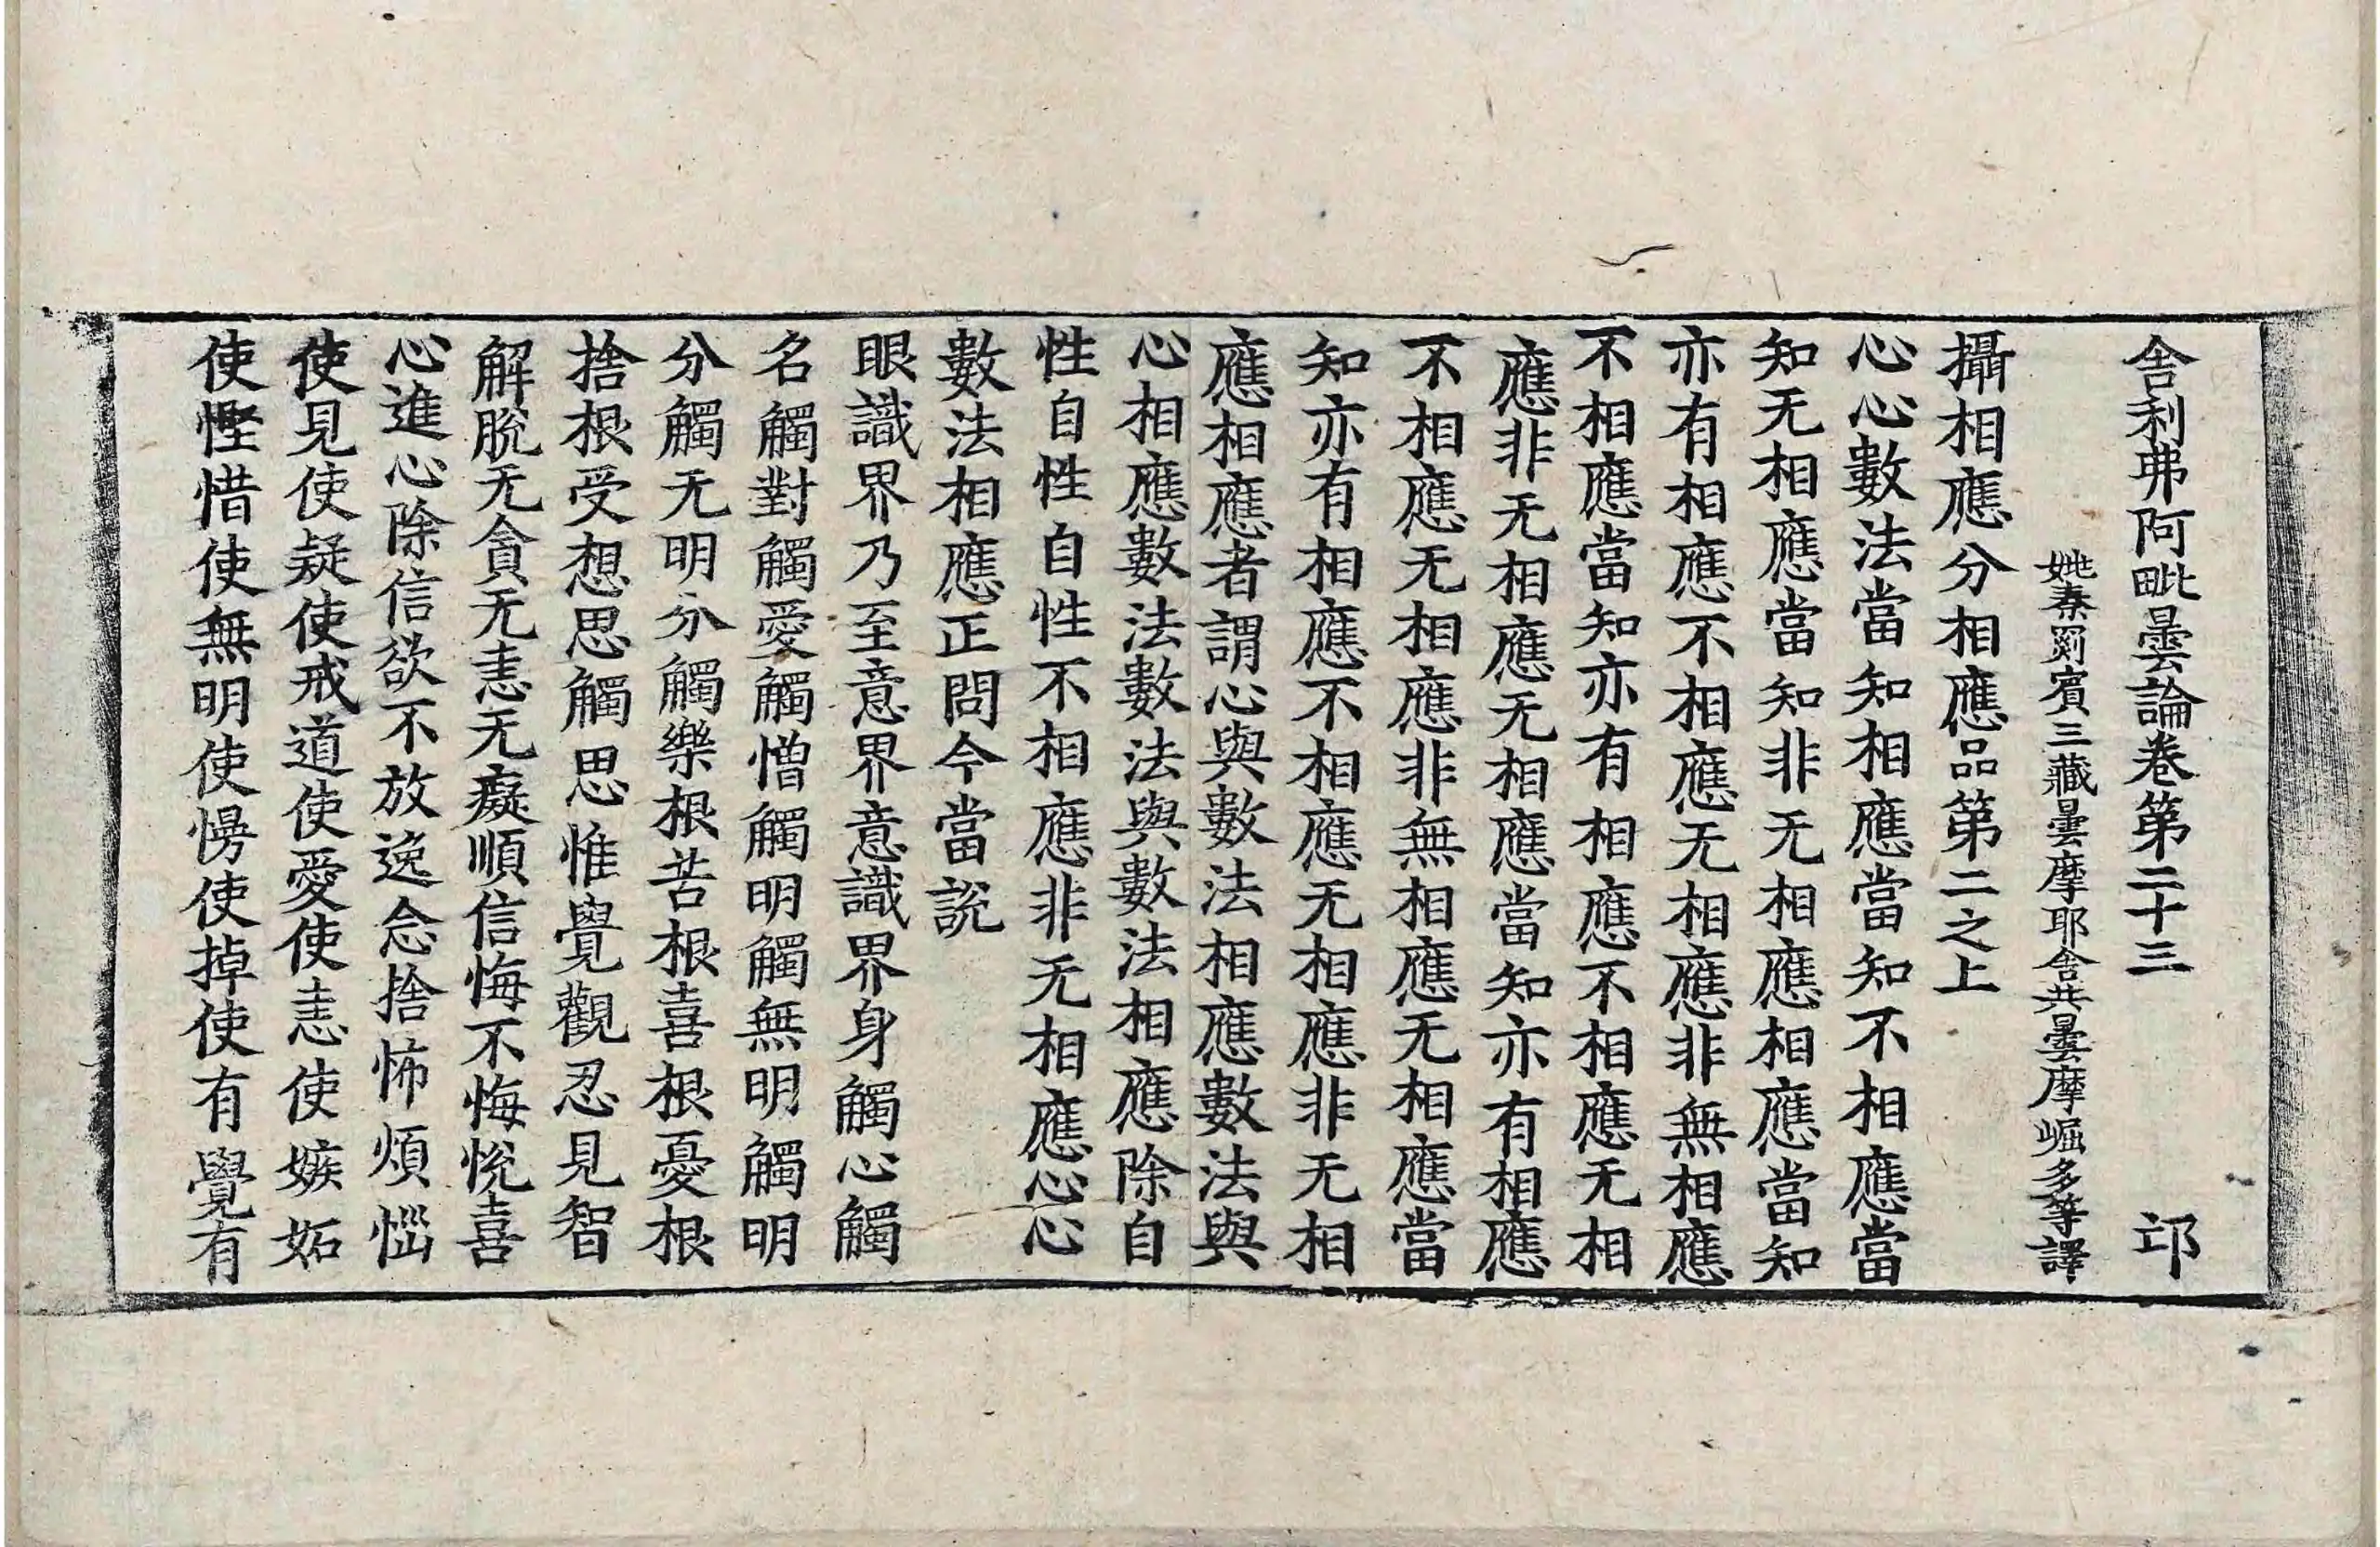 舍利弗阿毗曇論卷第二十三 邙
姚秦罽賓三藏曇摩耶舍共曇摩崛多等譯
攝相應分相應品第二之上
心心數法當知相應當知不相應當
知无相應當知非无相應相應當知
亦有相應不相應无相應非無相應
不相應當知亦有相應不相應无相
應非无相應无相應當知亦有相應
不相應无相應非無相應无相應當
知亦有相應不相應无相應非无相
應相應者謂心與數法相應數法與
心相應數法數法與數法相應除自
性自性自性不相應非无相應心心
數法相應正問今當說
眼識界乃至意界意識界身觸心觸
名觸對觸愛觸憎觸明觸無明觸明
分觸无明分觸樂根苦根喜根憂根
捨根受想思觸思惟覺觀忍見智
解脫无貪无恚无癡順信悔不悔悅喜
心進心除信欲不放逸念捨怖煩惱
使見使疑使戒道使愛使恚使嫉妬
使慳惜使無明使慢使掉使有覺有